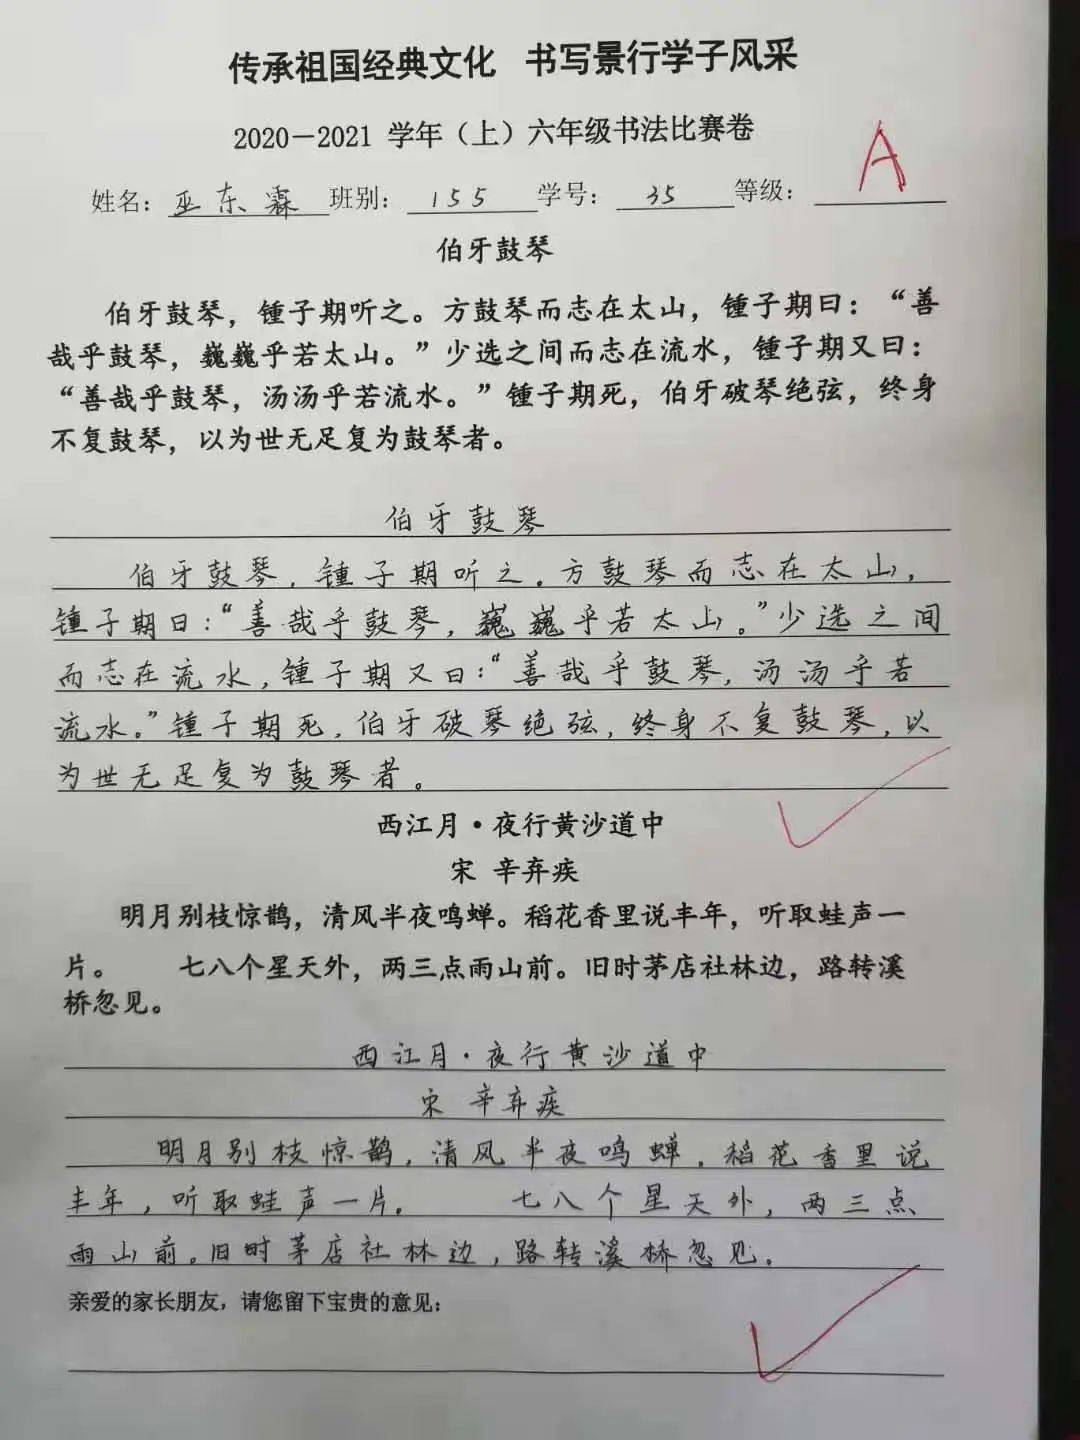 传承祖国经典文化 书写景行学子风采
2020-2021 学年（上）六年级书法比赛卷
姓名：巫东霖 班别：155 学号：35 等级：A
伯牙鼓琴
伯牙鼓琴，锺子期听之。方鼓琴而志在太山，锺子期曰：“善
哉乎鼓琴，巍巍乎若太山。”少选之间而志在流水，锺子期又曰：
“善哉乎鼓琴，汤汤乎若流水。”锺子期死，伯牙破琴绝弦，终身
不复鼓琴，以为世无足复为鼓琴者。
伯牙鼓琴
伯牙鼓琴，锺子期听之。方鼓琴而志在太山，
锺子期曰：“善哉乎鼓琴，巍巍乎若太山。”少选之间
而志在流水，锺子期又曰：“善哉乎鼓琴，汤汤乎若
流水。”锺子期死，伯牙破琴绝弦，终身不复鼓琴，以
为世无足复为鼓琴者。
西江月·夜行黄沙道中
宋 辛弃疾
明月别枝惊鹊，清风半夜鸣蝉。稻花香里说丰年，听取蛙声一
片。 七八个星天外，两三点雨山前。旧时茅店社林边，路转溪
桥忽见。
西江月·夜行黄沙道中
宋 辛弃疾
明月别枝惊鹊，清风半夜鸣蝉。稻花香里说
丰年，听取蛙声一片。 七八个星天外，两三点
雨山前。旧时茅店社林边，路转溪桥忽见。
亲爱的家长朋友，请您留下宝贵的意见：